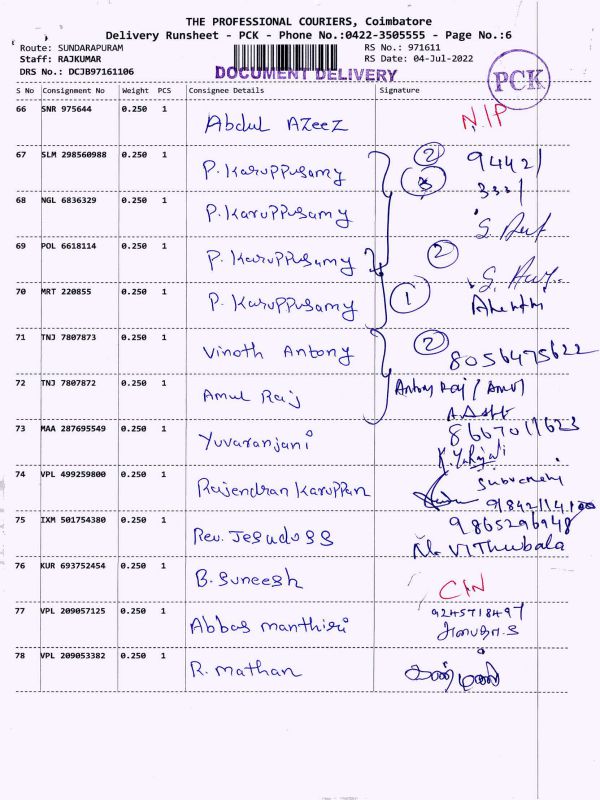 THE PROFESSIONAL COURIERS, Coimbatore
Delivery Runsheet - PCK - Phone No.:0422-3505555 - Page No.:6
Route: SUNDARAPURAM RS No.: 971611
Staff: RAJKUMAR RS Date: 04-Jul-2022
DRS No.: DCJB97161106 DOCUMENT DELIVERY PCK
S No Consignment No Weight PCS Consignee Details Signature
66 SNR 975644 0.250 1 Abdul Azeez N/P
67 SLM 298560988 0.250 1 P. Karuppusamy 2 94421
3 3331
68 NGL 6836329 0.250 1 P. Karuppusamy
69 POL 6618114 0.250 1 P. Karuppusamy 2
70 MRT 220855 0.250 1 P. Karuppusamy 1
71 TNJ 7807873 0.250 1 Vinoth Antony 2 8056475622
72 TNJ 7807872 0.250 1 Amul Raj Antony Raj / Amul
73 MAA 287695549 0.250 1 Yuvaranjani 8667011623
74 VPL 499259800 0.250 1 Rajendran Karuppan
75 IXM 501754380 0.250 1 Rev. Jesudoss 9865296948
M. VIThubala
76 KUR 693752454 0.250 1 B. Suneesh C/N
77 VPL 209057125 0.250 1 Abbas manthiri 9245718497
78 VPL 209053382 0.250 1 R. Mathan